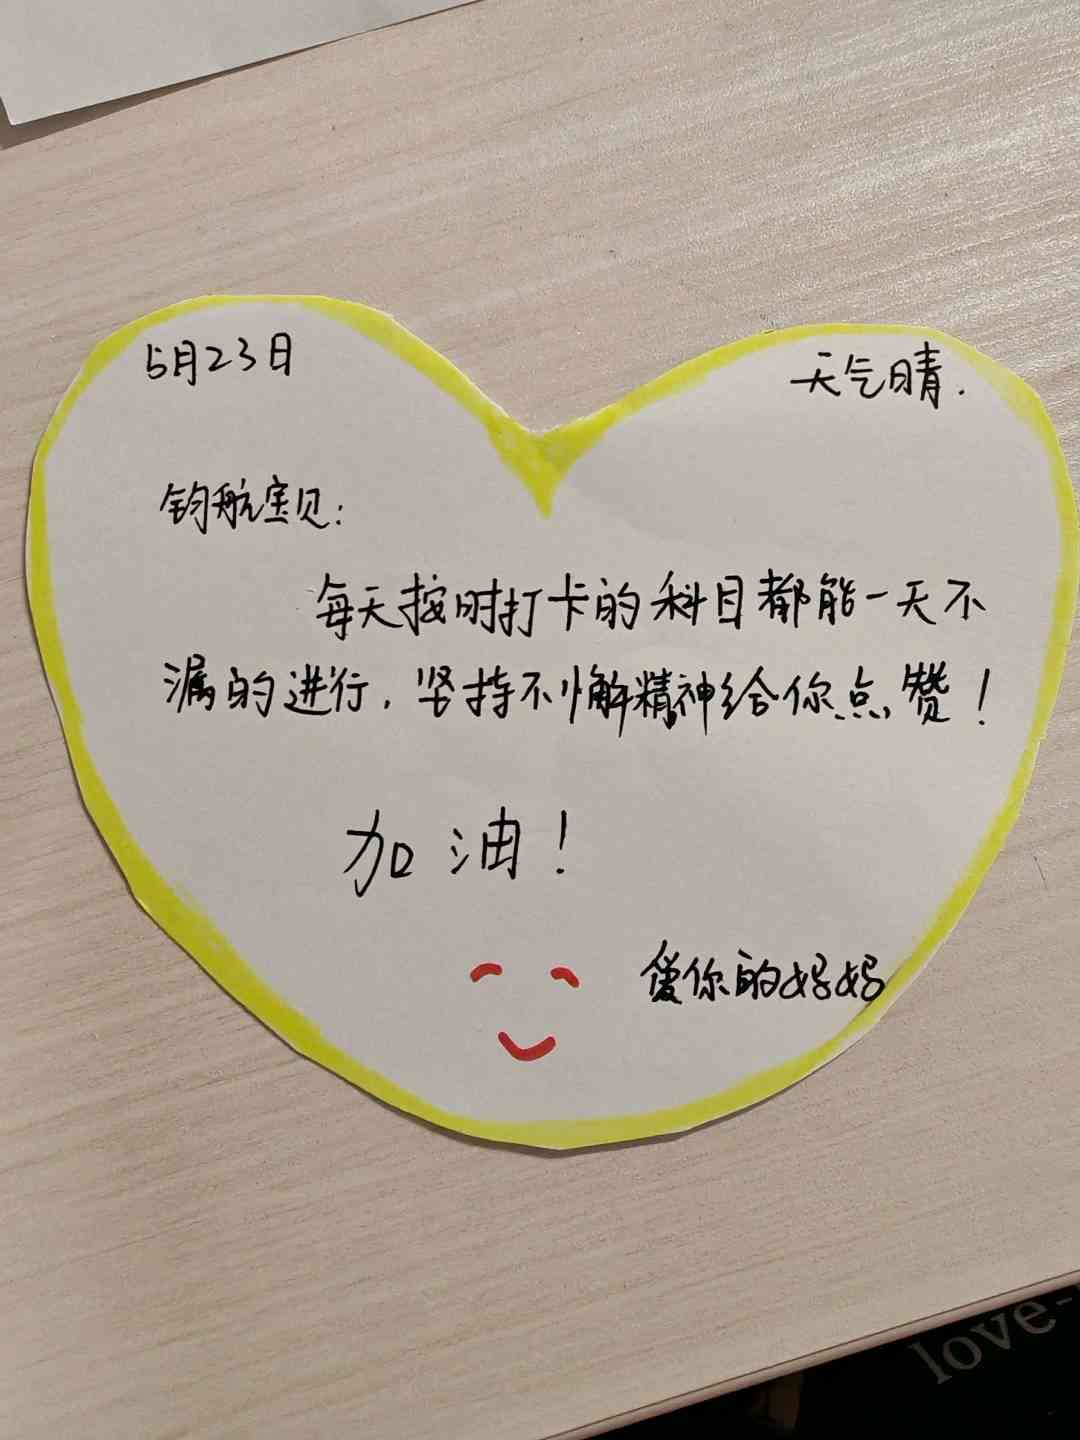 5月23日 天气晴.
钧航宝贝:
每天按时打卡的科目都能一天不
漏的进行,坚持不懈精神给你点赞!
加油!
爱你的妈妈
love-